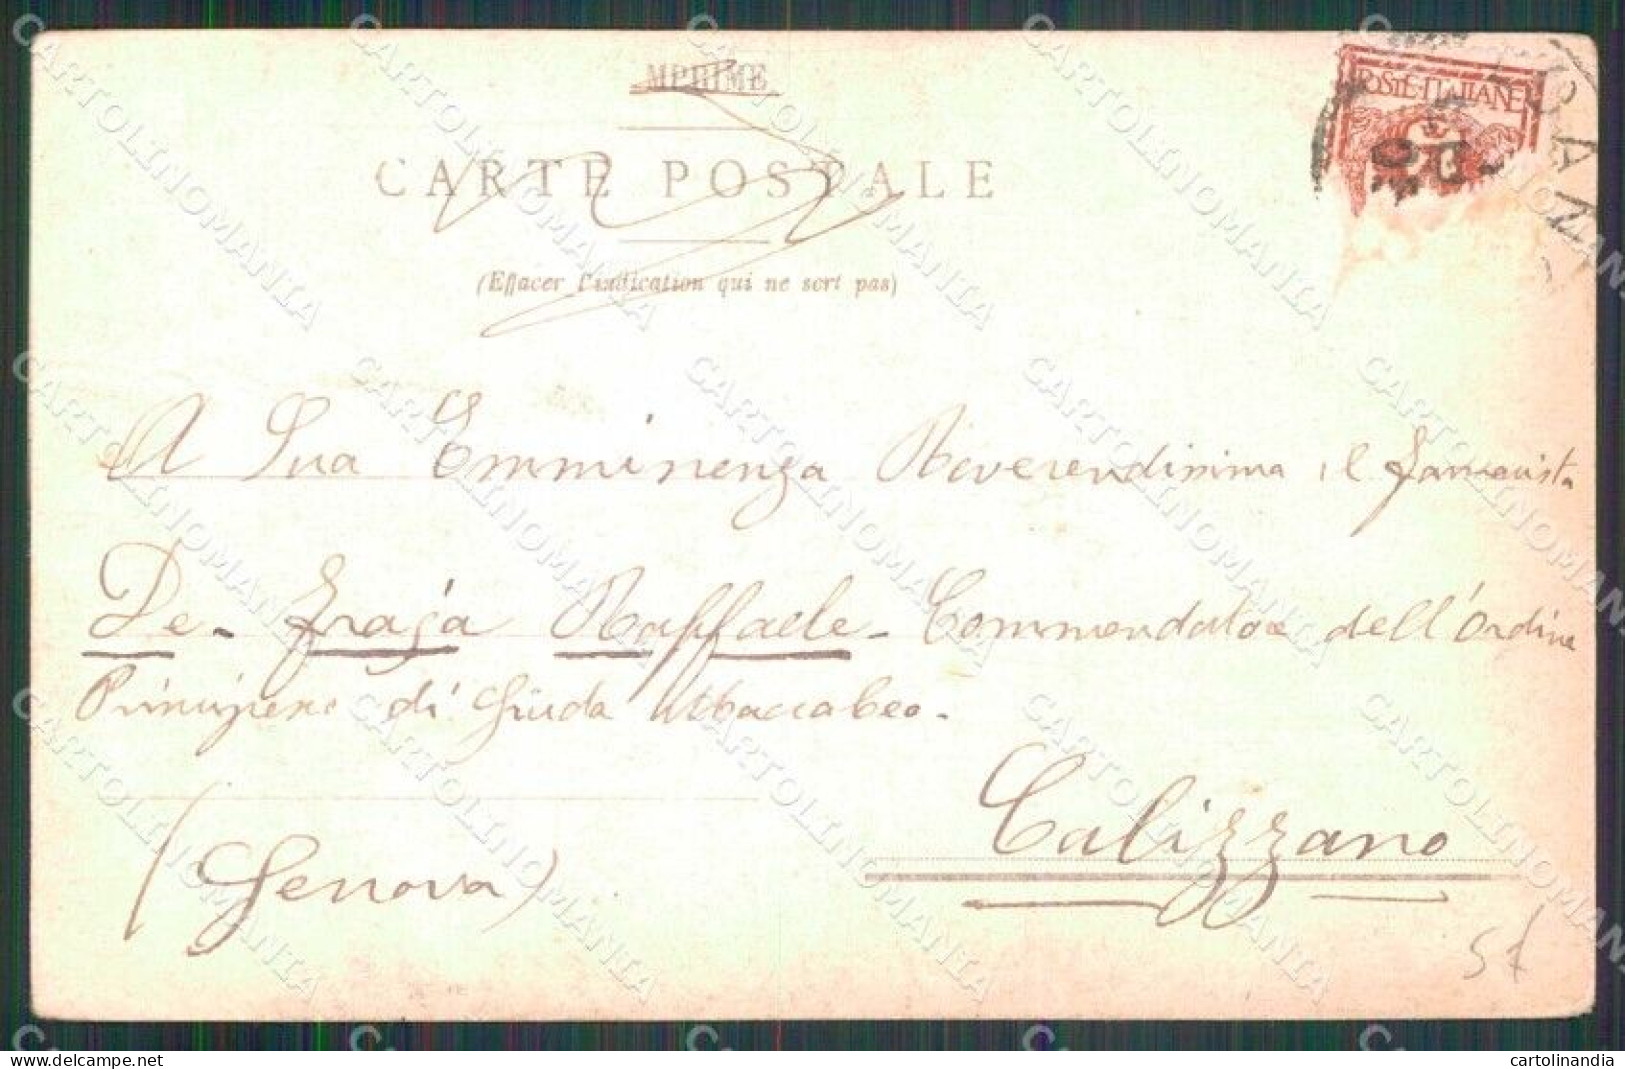 MPRIME
CARTE POSTALE
(Effacer l'indication qui ne sert pas)
POSTE ITALIANE
A Sua Emminenza Reverendissima il
De-Fraja Raffaele - Commendatore dell'Ordine
di Giuda Maccabeo.
Calizzano
(Genova)
CARTOLINOMANIA
cartolinandia
delcampe.net